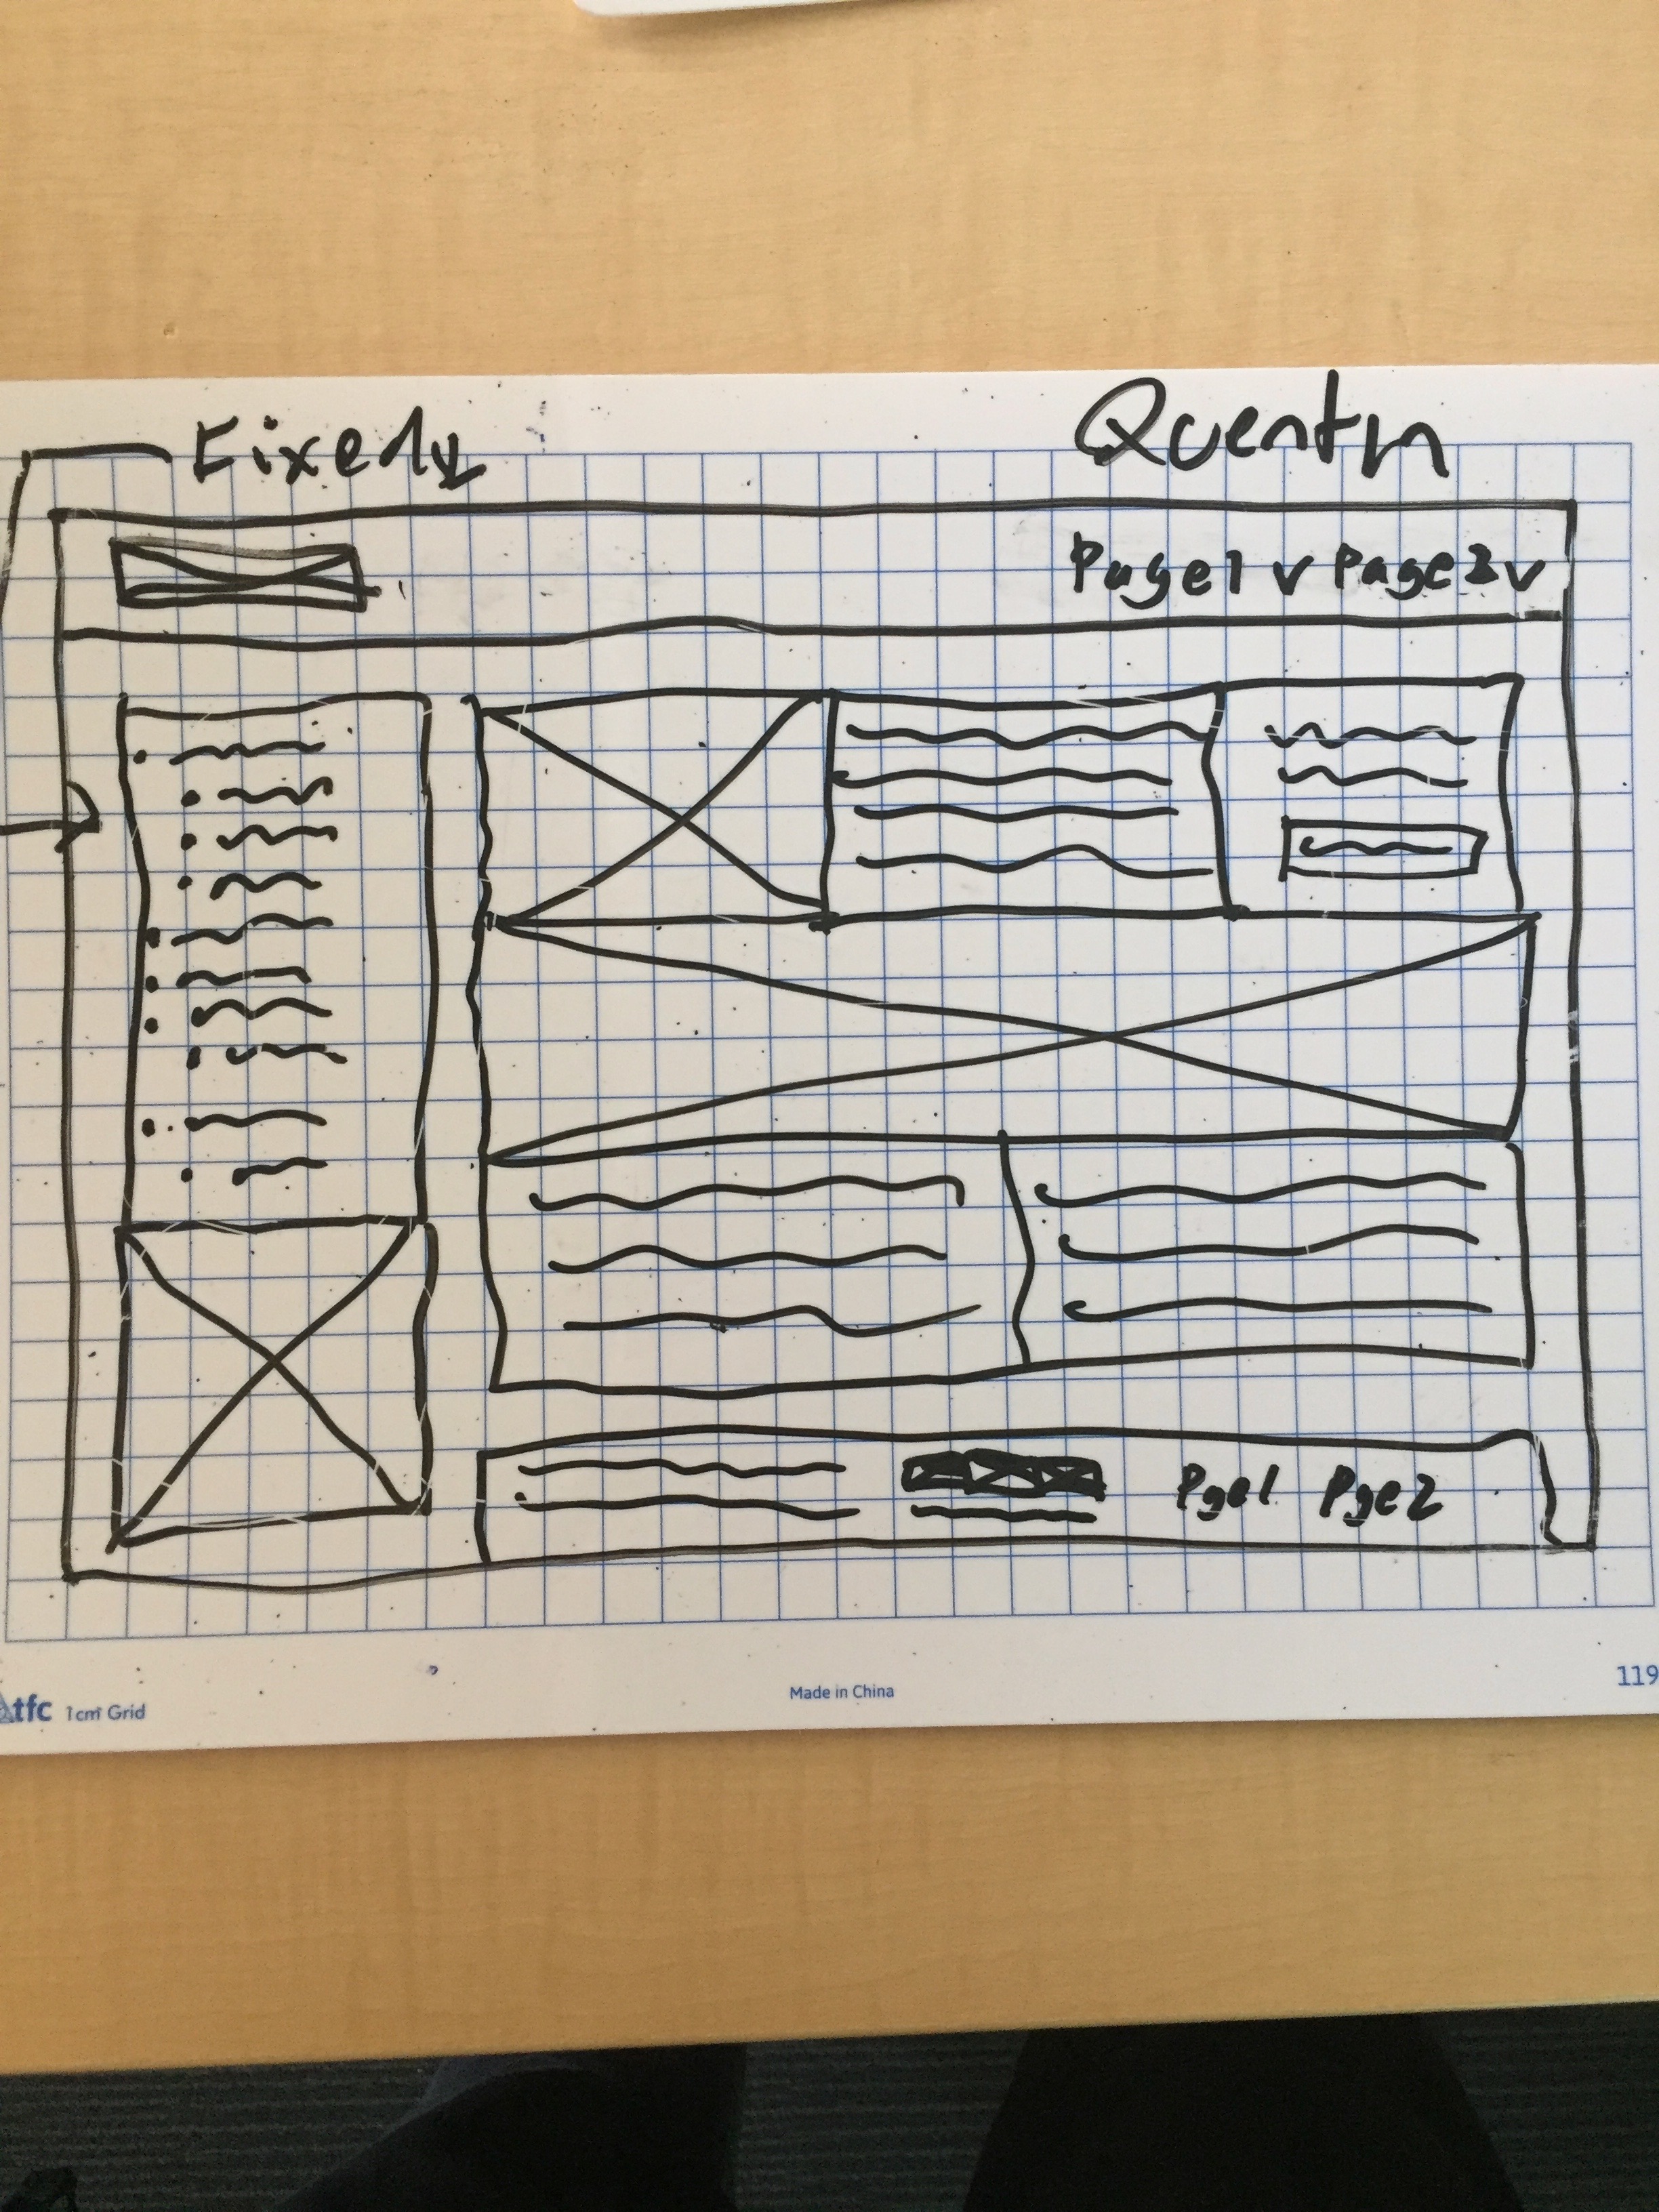 Fixed Quentin
Page1 v Page2 v
Pge1 Pge2
tfc 1cm Grid Made in China 119